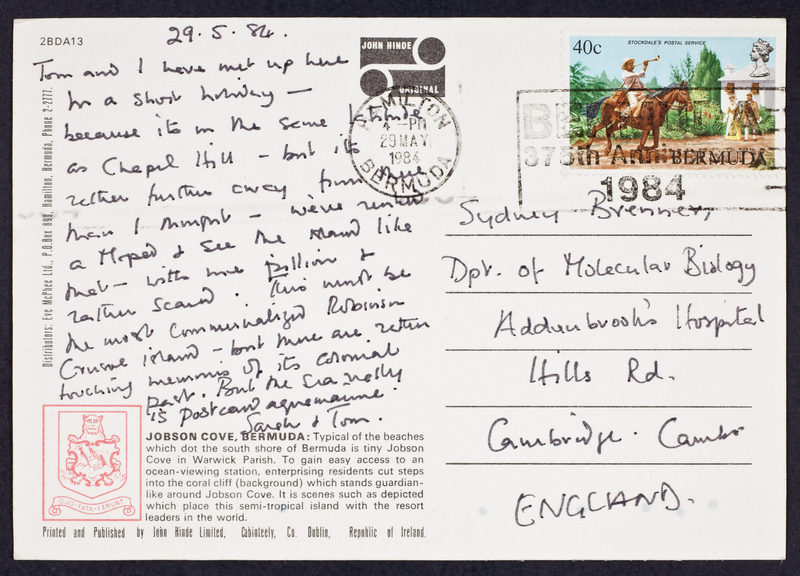 2BDA13
29.5.84.
Tom and I have met up here
for a short holiday —
because its on the same latitude
as Chapel Hill — but its
rather further away from there
than I thought — we've rented
a Moped & see the island like
that — with me pillion &
rather scared. This must be
the most commercialized Robinson
Crusoe island — but there are rather
touching memories of its colonial
past. But the sea really
is postcard aquamarine.
Sarah & Tom.
JOHN HINDE
ORIGINAL
HAMILTON
4 - PM
29 MAY
1984
BERMUDA
40c
STOCKDALE'S POSTAL SERVICE
BERMUDA
375th Anni
1984
Sydney Brenner,
Dpt. of Molecular Biology
Addenbrook's Hospital
Hills Rd.
Cambridge. Cambs
ENGLAND.
Distributors: Eve McPhee Ltd., P.O.Box 899, Hamilton, Bermuda, Phone 2-2777.
QUO FATA FERUNT
JOBSON COVE, BERMUDA: Typical of the beaches
which dot the south shore of Bermuda is tiny Jobson
Cove in Warwick Parish. To gain easy access to an
ocean-viewing station, enterprising residents cut steps
into the coral cliff (background) which stands guardian-
like around Jobson Cove. It is scenes such as depicted
which place this semi-tropical island with the resort
leaders in the world.
Printed and Published by John Hinde Limited, Cabinteely, Co. Dublin, Republic of Ireland.